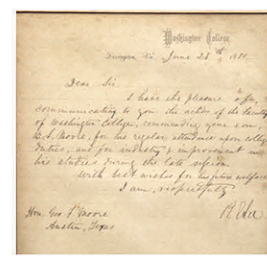 Washington College,
Lexington, Va. June 28th, 18
Dear Sir:
I have the pleasure of
communicating to you the action of the Faculty
of Washington College, commending your son
Moore, for his regular attendance upon college
duties, and for industry & improvement in
his studies during the late session.
With best wishes for his future welfare
I am, respectfully
R E Lee
Hon: Geo F Moore
Austin, Texas